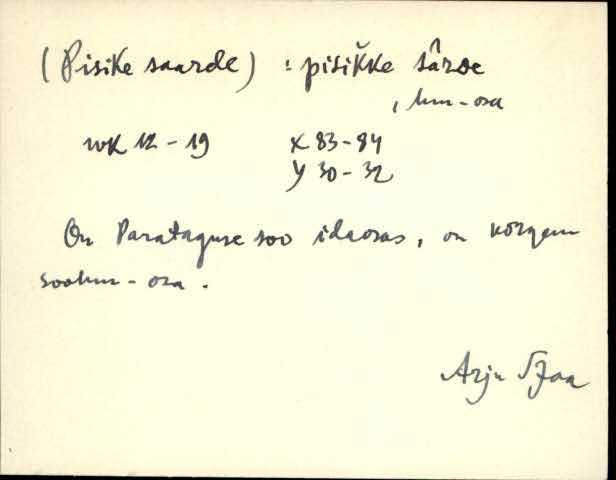 (Pisike saarde) : pisik̆ke sârde
, hm-osa
WK 12 - 19 X 83-84
Y 30-32
On Parataguse soo idaosas, on kõrgem
soohm-osa.
Arju Jaan